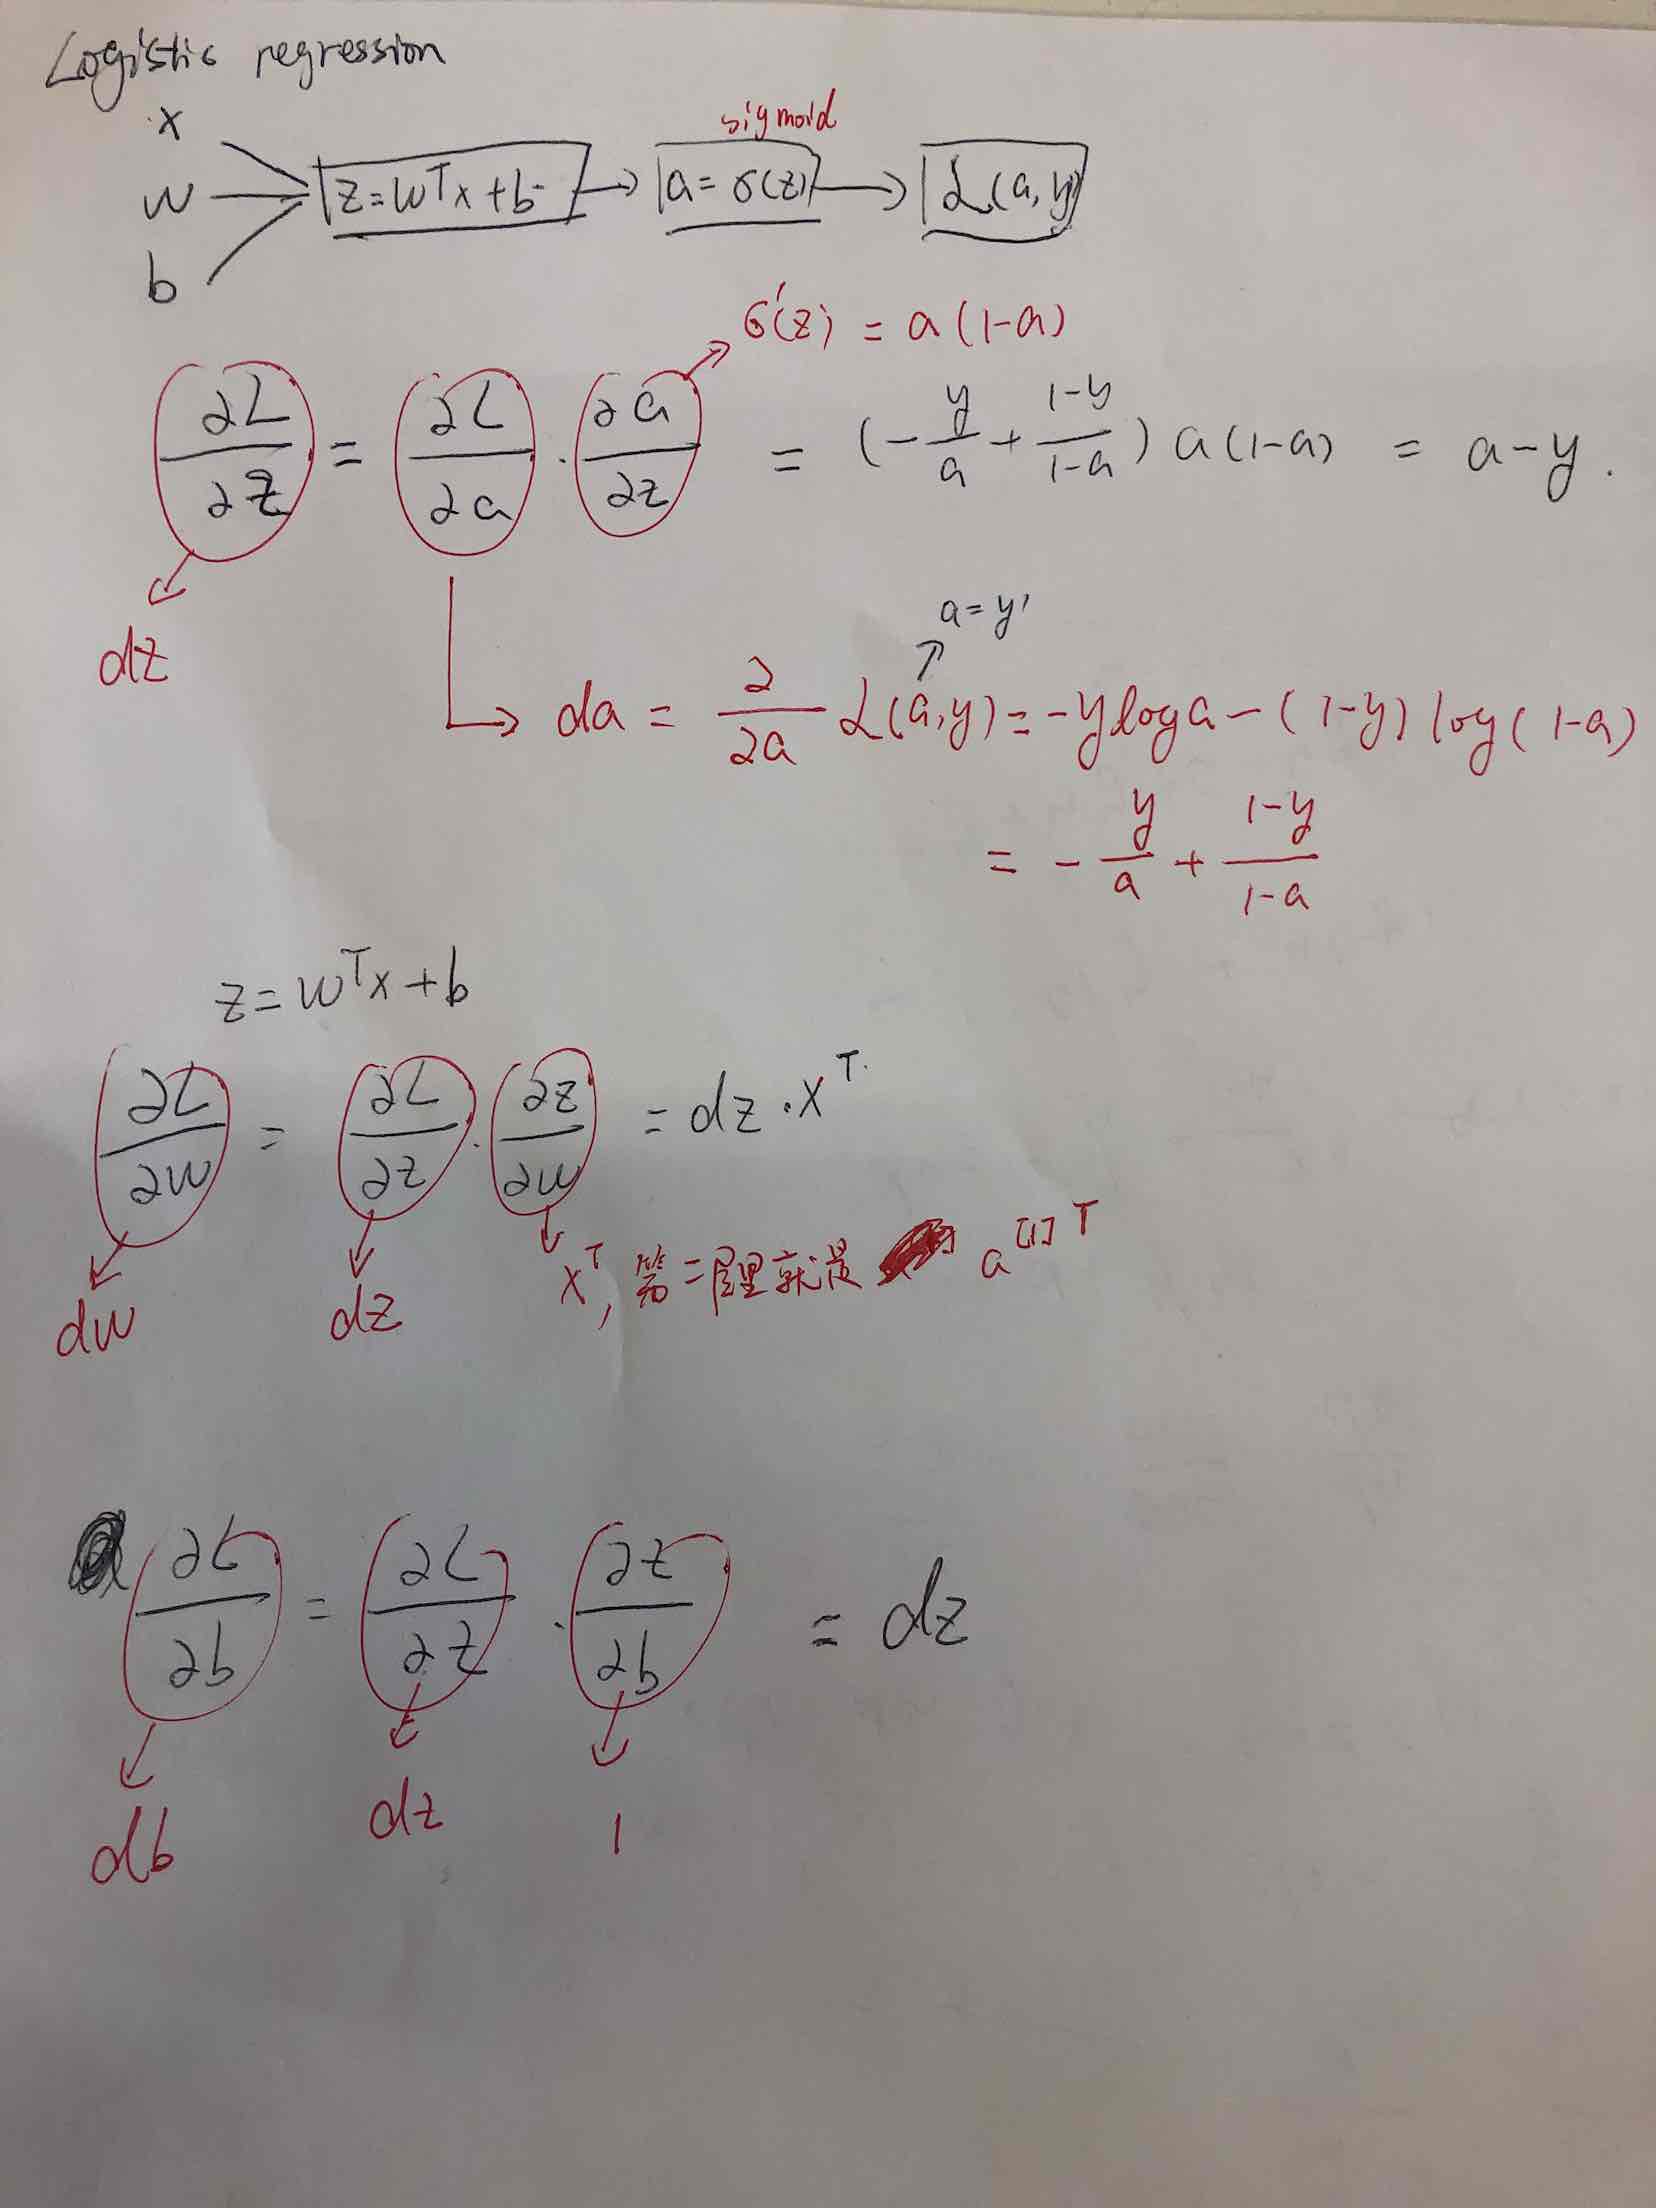 Logistic regression
x
w
b
z=wᵀx+b
sigmoid
a=σ(z)
L(a,y)
σ'(z) = a(1-a)
∂L/∂z = ∂L/∂a · ∂a/∂z = (-y/a + (1-y)/(1-a)) a(1-a) = a-y.
dz
a=y'
da = ∂/∂a L(a,y) = -yloga-(1-y)log(1-a)
= -y/a + (1-y)/(1-a)
z=wᵀx+b
∂L/∂w = ∂L/∂z · ∂z/∂w = dz·xᵀ
dw
dz
xᵀ, 第二层里就是 a^[1]ᵀ
∂L/∂b = ∂L/∂z · ∂z/∂b = dz
db
dz
1